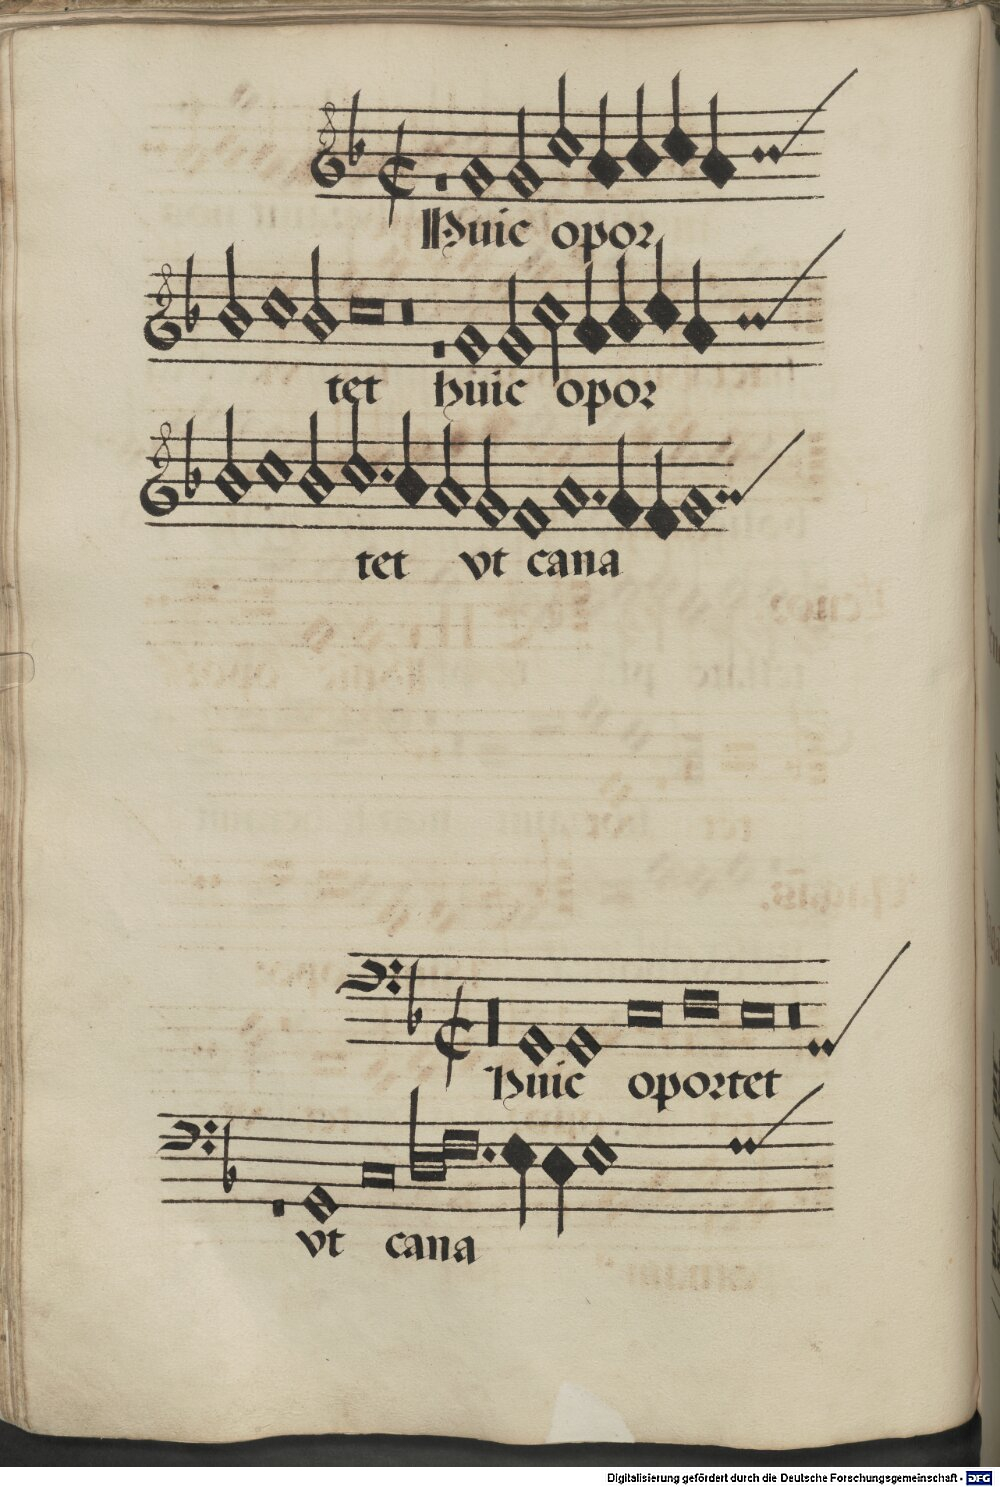 Huic opor
tet huic opor
tet vt cana
Huic oportet
vt cana
Digitalisierung gefördert durch die Deutsche Forschungsgemeinschaft - DFG